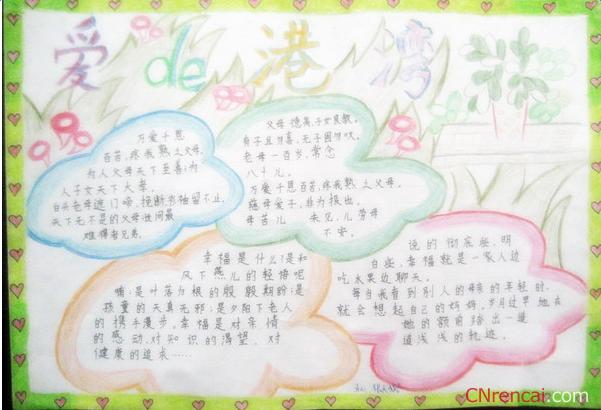 爱de港湾
万爱千恩
百苦,疼我孰之父母。
为人父母天下至善;为
人子女天下大孝。
白头老母遮门啼,挽断衫袖留不止。
天下无不是的父母;世间最
难得者兄弟。
父母德高;子女良教。
有子且勿喜,无子固勿叹。
老母一百岁,常念
八十儿。
万爱千恩百苦,疼我孰之父母。
慈母爱子,非为报也。
母苦儿未见,儿劳母
不安。
幸福是什么?是和
风下燕儿的轻梧呢
喃;是叶落为根的殷殷期盼;是
孩童的天真无邪;是夕阳下老人
的携手漫步。幸福是对亲情
的感动,对知识的渴望,对
健康的追求……
说的彻底些,明
白些,幸福就是一家人边
吃水果边聊天。
每当我看到别人的母亲的年轻时,
就会想起自己的妈妈。岁月过早地在
她的额角踏出一道
道浅浅的轨迹。
CNrencai.com